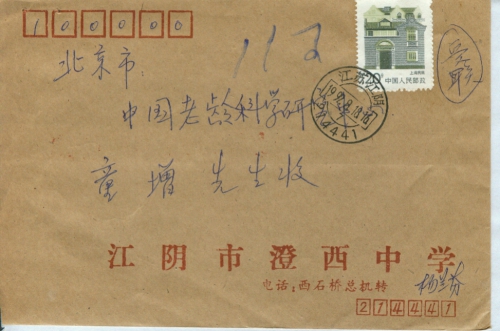 100000
112
北京市：
中国老龄科学研
童增 先生收
20分
上海民居
中国人民邮政
江苏江阴
214441
江阴市澄西中学
电话：西石桥总机转
214441